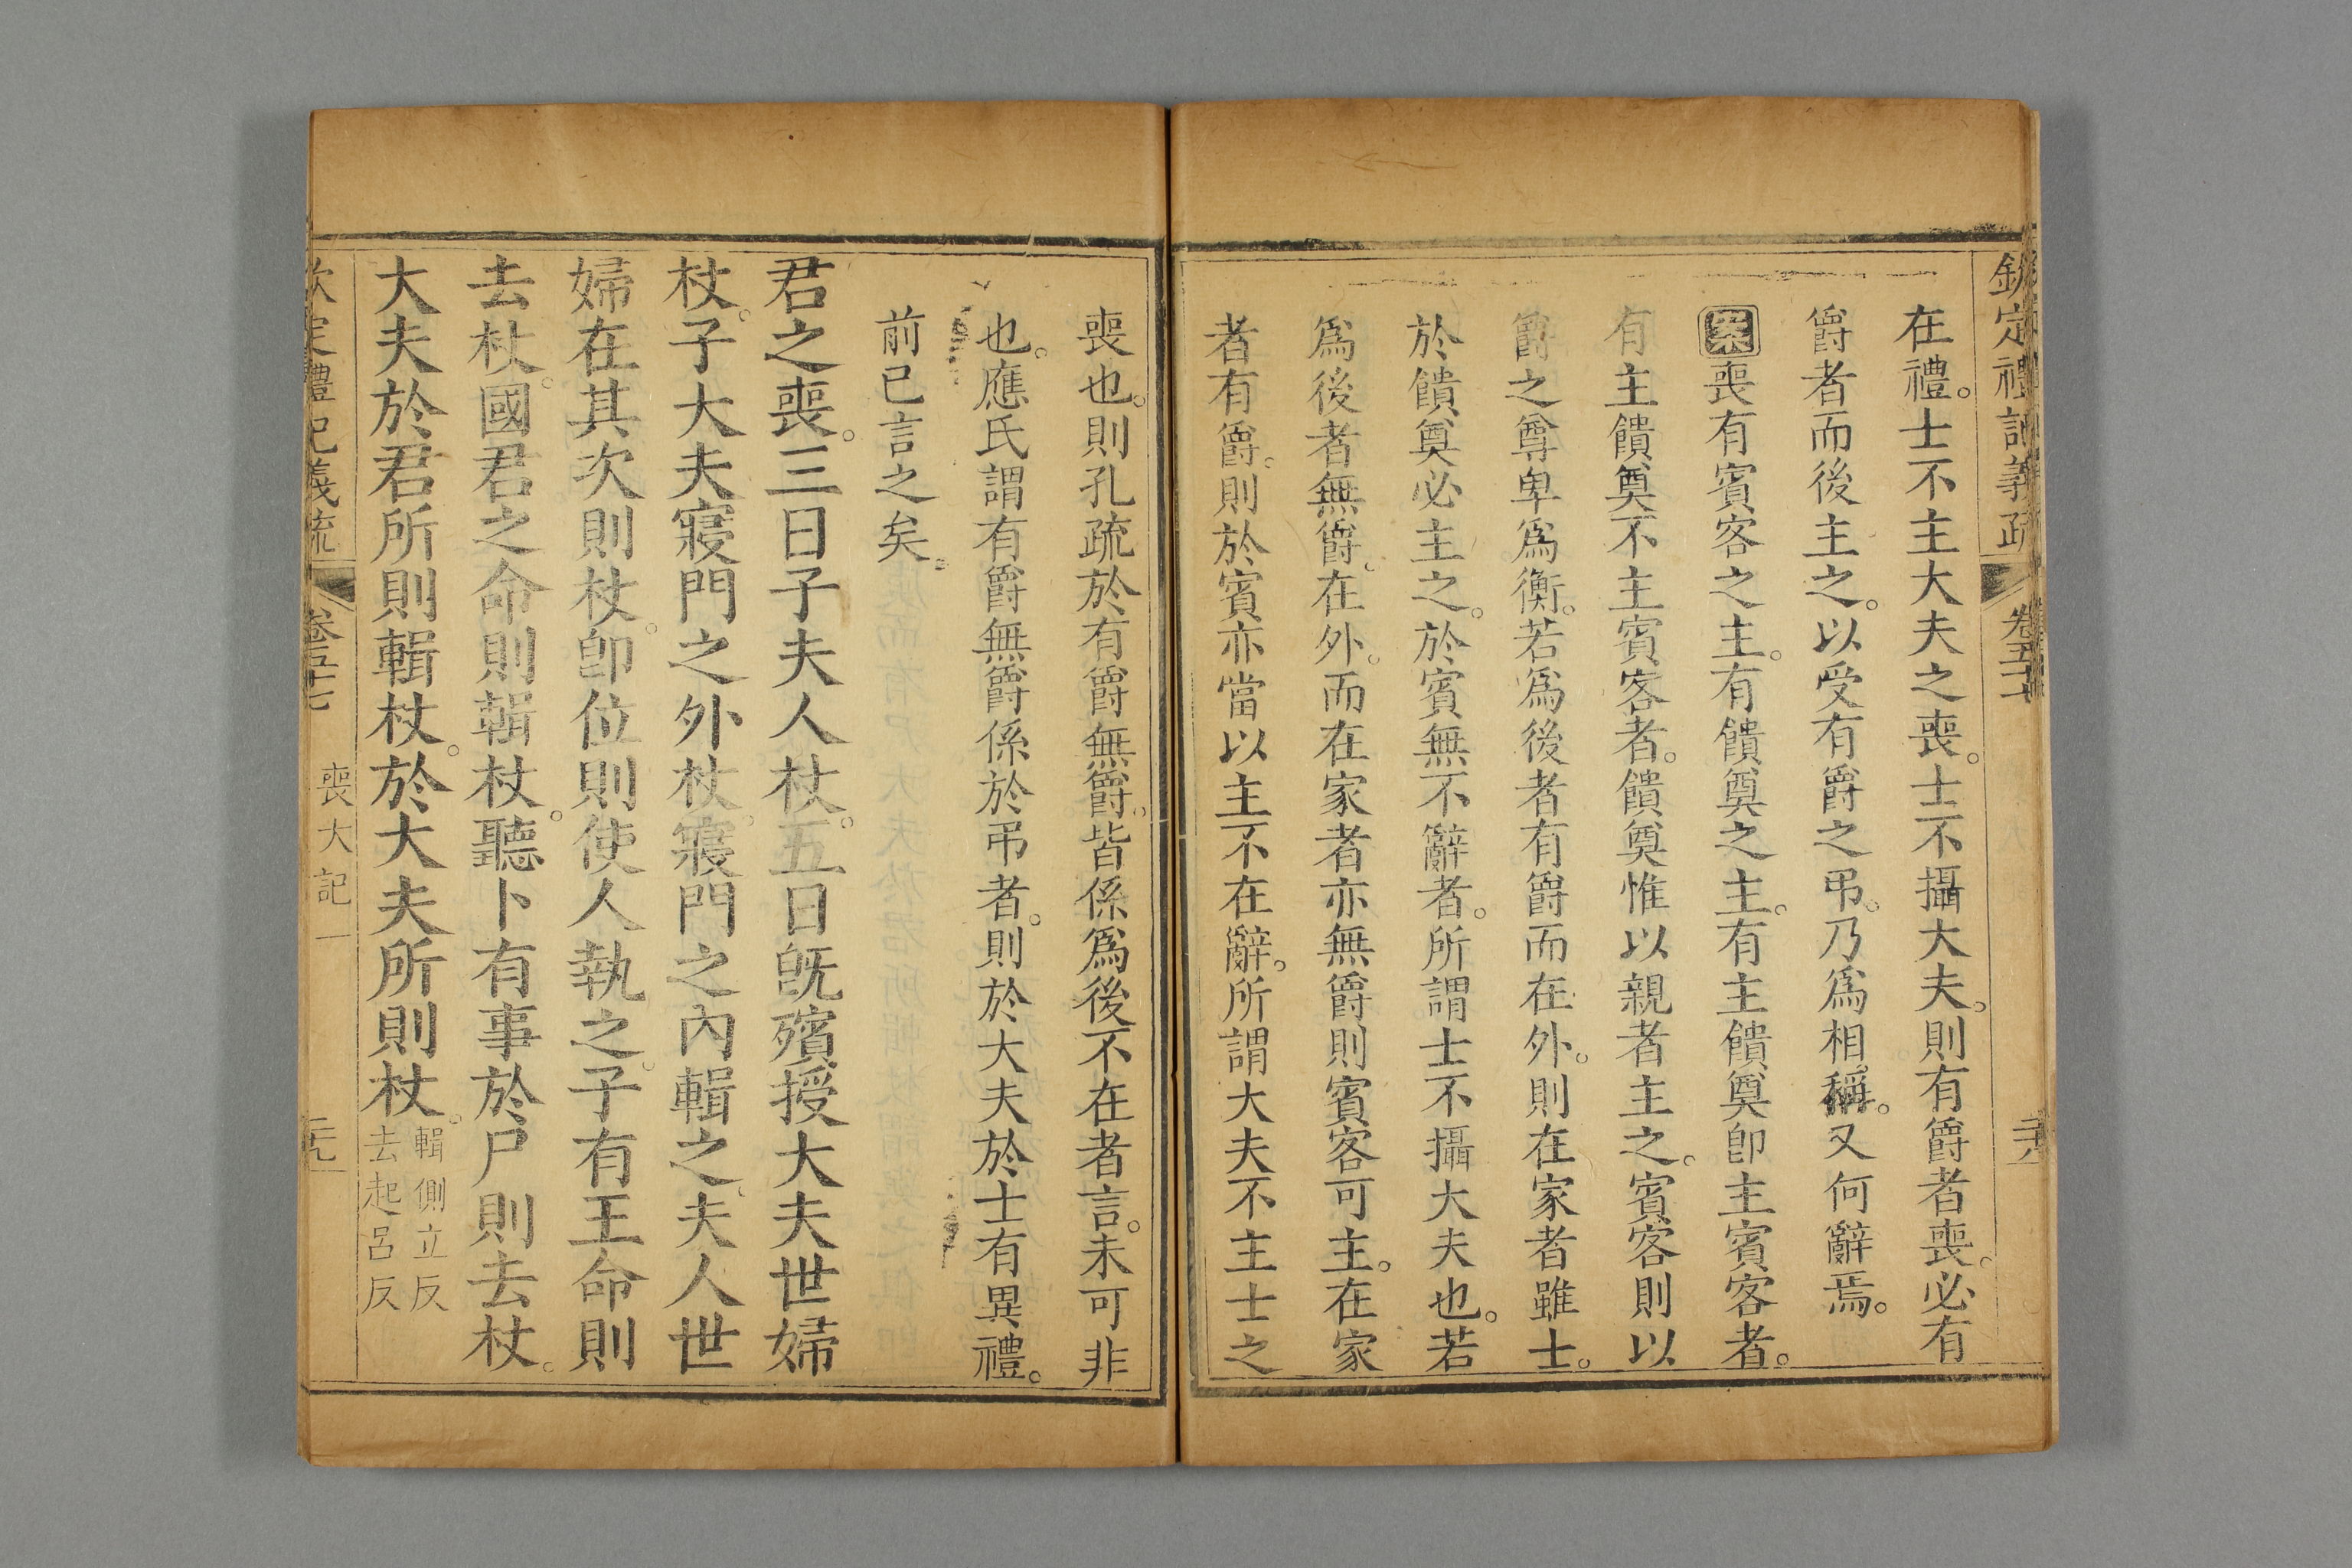 欽定禮記義疏 卷五十七 二十八
在禮。士不主大夫之喪。士不攝大夫。則有爵者喪。必有
爵者而後主之。以受有爵之弔。乃爲相稱。又何辭焉。
案喪有賓客之主。有饋奠之主。有主饋奠卽主賓客者。
有主饋奠不主賓客者。饋奠惟以親者主之。賓客則以
爵之尊卑爲衡。若爲後者有爵而在外。則在家者雖士。
於饋奠必主之。於賓無不辭者。所謂士不攝大夫也。若
爲後者無爵。在外。而在家者亦無爵則賓客可主。在家
者有爵。則於賓亦當以主不在辭。所謂大夫不主士之
喪也。則孔疏於有爵無爵。皆係爲後不在者言。未可非
也。應氏謂有爵無爵係於弔者。則於大夫於士有異禮。
前已言之矣。
君之喪。三日子夫人杖。五日旣殯授大夫世婦
杖。子大夫寢門之外杖。寢門之內輯之。夫人世
婦在其次則杖。卽位則使人執之。子有王命則
去杖。國君之命則輯杖。聽卜有事於尸則去杖。
大夫於君所則輯杖。於大夫所則杖。輯側立反
去起呂反
欽定禮記義疏 卷五十七 喪大記一 二十九